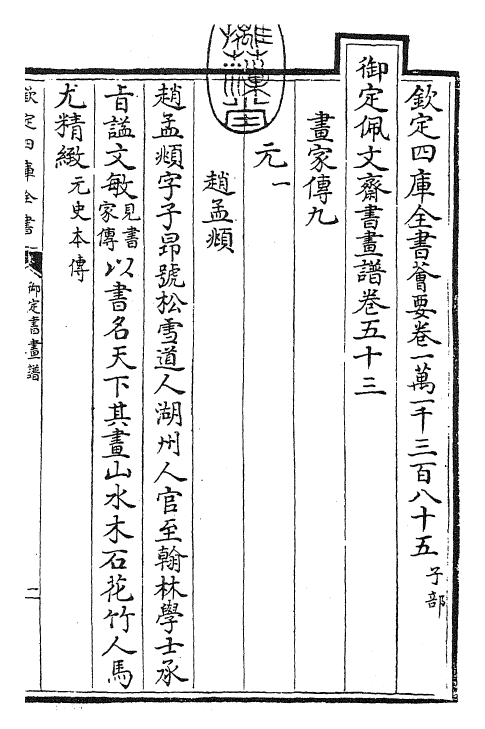 欽定四庫全書薈要卷一萬一千三百八十五 子部
御定佩文齋書畫譜卷五十三
畫家傳九
元一
趙孟頫
趙孟頫字子昂號松雪道人湖州人官至翰林學士承
旨諡文敏見書家傳以書名天下其畫山水木石花竹人馬
尤精緻元史本傳
欽定四庫全書
御定書畫譜
二